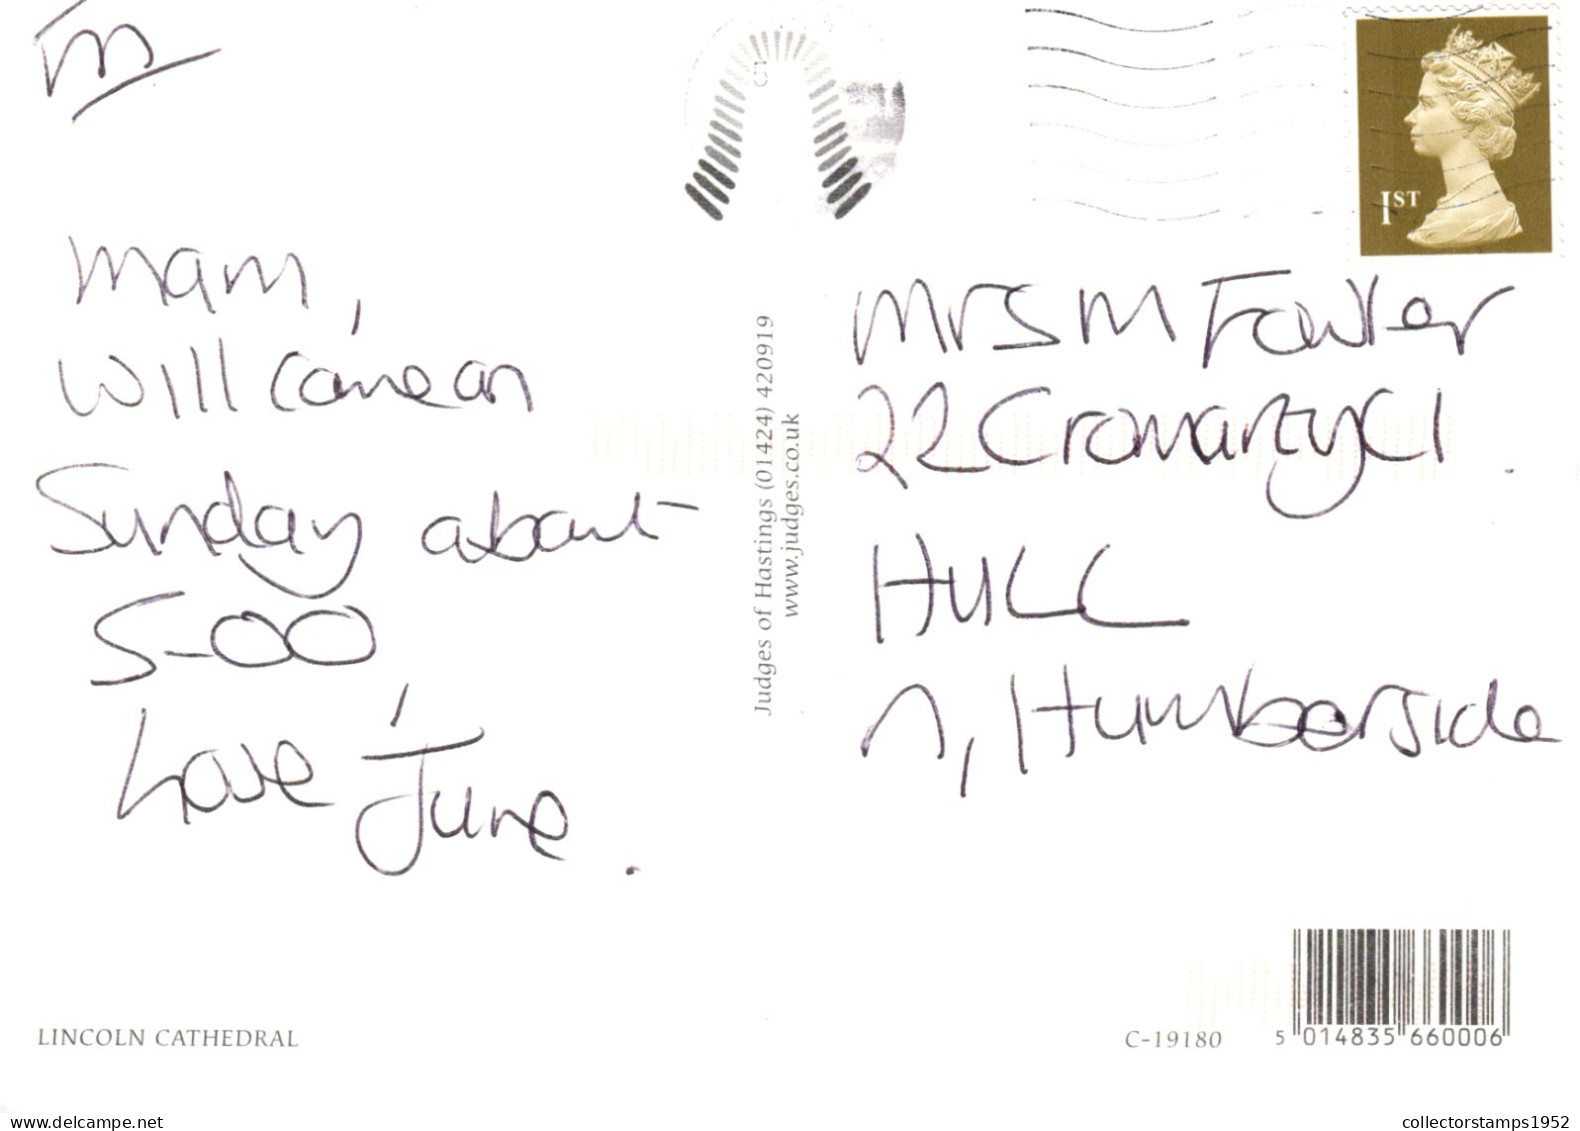 Mam,
Will come on
Sunday about
5-00
Love, June.
Judges of Hastings (01424) 420919
www.judges.co.uk
1ST
Mrs M Fowler
22 Cromarty Cl.
HULL
N, Humberside
LINCOLN CATHEDRAL
C-19180
5 014835 660006
my.delcampe.net
collectorstamps1952